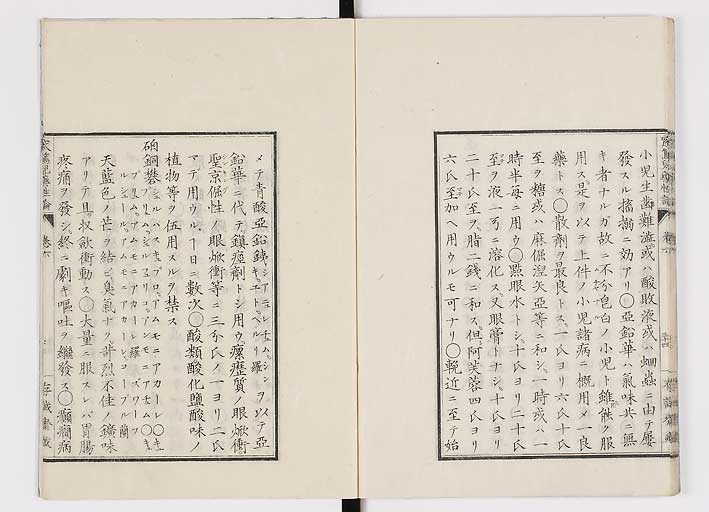 小児生歯難澁或ハ酸敗液或ハ蛔蟲ニ由テ屡
發スル搐搦ニ効アリ〇亞鉛華ハ氣味共ニ無
キ者ナルガ故ニ不分皂白ノ小児ト雖モ能ク服
用ス是ヲ以テ上件ノ小児諸病ニ概用メ一良
藥トス〇散劑ヲ最良トス一氏ヨリ六氏十氏
至ヲ糖或ハ麻倔涅矢亞等ニ和シ一時或ハ一
時半毎ニ用ウ〇點眼水トシ十氏ヨリ二十氏
至ヲ液一弓ニ溶化ス又眼膏トナシ十氏ヨリ
二十氏至ヲ脂二錢ニ和ス但阿芙蓉四氏ヨリ
六氏至加ヘ用ウルモ可ナリ〇輓近ニ至テ始
メテ青酸亞鉛
ヲ以テ亞
鉛華ニ代テ鎮痙劑トシ用ウ瘰癧質ノ眼焮衝
聖京倔性ノ眼焮衝等ニ三分氏ノ一ヨリ二氏
マデ用ウル 日ニ數次〇酸類酸化鹽酸味ノ
植物等ヲ伍用スルヲ禁ス
硇銅礬
天藍色ノ芒ヲ結ビ臭氣ナク苛烈不佳ノ鑛味
アリテ 収歛衝動ス〇大量ニ服スレバ胃腸
疼痛ヲ發シ終ニ劇キ嘔吐ヲ繼發ス〇癲癇病